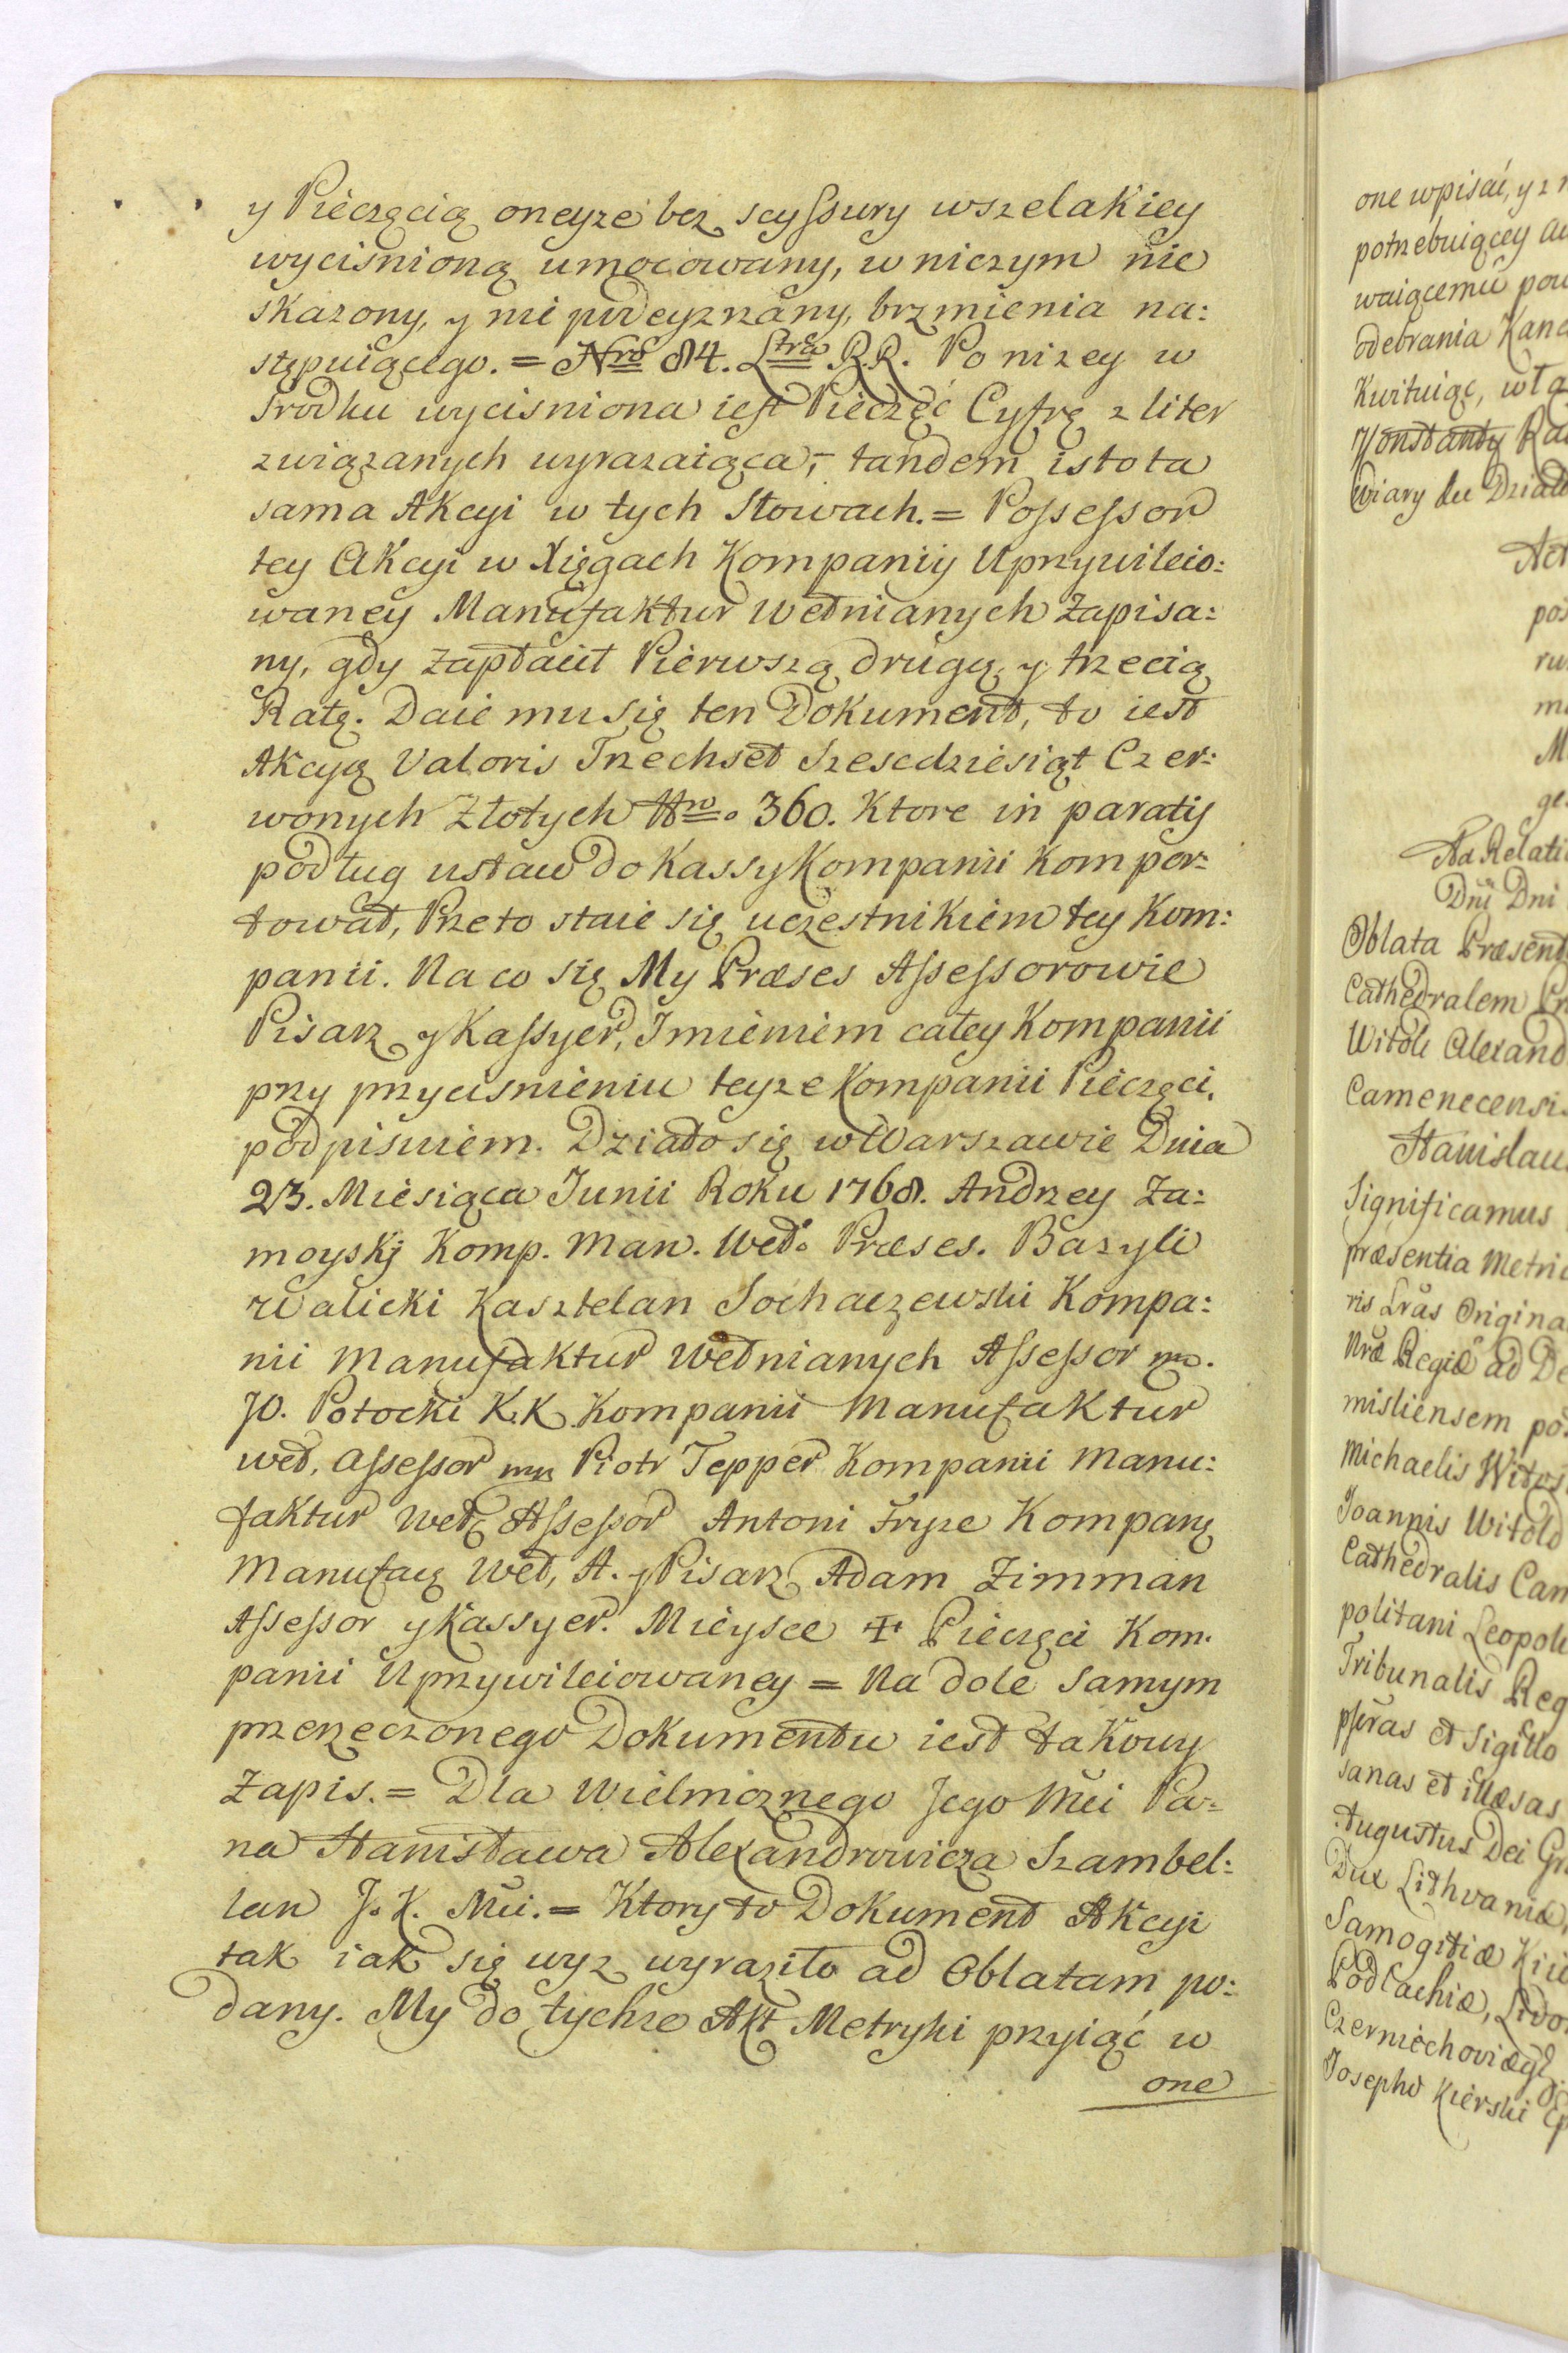 y Pieczęcią oneyże bez scyssury wszelakiey
wyciśnioną umocowany, w niczym nie
skazony, y nie podeyzrzany, brzmienia na:
stępuiącego. = Nro 84. Ltra R.R. Po nizey w
srodku wycisniona iest Pieczęć Cyfrę z liter
związanych wyrazaiąca; tandem istota
sama Akcyi w tych Słowach. = Possessor
tey Akcyi w Xięgach Kompanii Uprzywileio:
waney Manufaktur Wełnianych Zapisa:
ny, gdy Zapłacił Pierwszą drugą, y trzecią
Ratę. Daie mu się ten Dokument, to iest
Akcyą Valoris Trzechset Szescdziesiąt Czer:
wonych Złotych Nro. 360. Ktore in paratis
podług ustaw do Kassy Kompanii kompor:
tował, Przeto staie się uczestnikiem tey Kom:
panii. Na co się My Præses Assessorowie
Pisarz y Kassyer, Imieniem całey Kompanii
przy przycisnieniu teyze Kompanii Pieczęci,
podpisuiem. Działo się w Warszawie Dnia
23. Miesiąca Junii Roku 1768. Andrzey Za:
moyski Komp. Man. Weł. Præses. Bazyli
Walicki Kasztelan Sochaczewski Kompa:
nii Manufaktur Wełnianych Assessor mp.
JO. Potocki K.K. Kompanii Manufaktur
weł, Assessor mp Piotr Tepper Kompanii Manu:
faktur Weł, Assessor Antoni Fryze Kompanę
Manufacę Weł, A. y Pisarz Adam Zimman
Assessor y Kassyer. Mieysce ✠ Pieczęci Kom.
panii Uprzywileiowaney = Na dole samym
przerzeczonego Dokumentu iest takowy
Zapis. = Dla Wielmoznego Jego Mci Pa=
na Stanisława Alexandrowicza Szambel:
lan J. K. Mci. = Ktory to Dokument Akcyi
tak iak się wyz wyraziło ad Oblatam po:
dany. My do tychze Akt Metryki przyiąć w
one
one wpisać, y z
potrzebuiącey
waiącemu
odebrania
Kwituiąc,
Konstanty
Wiary
Ad Relati
Dni Dni
Oblata Præsent
Cathedralem
Witold Alexand
Camenecensis
Stanislaus
Significamus
præsentia Metric
ris Lras Origina
Nræ Regiæ ad De
misliensem
Michaelis
Joannis Witold
Cathedralis Cam
politani Leopol
Tribunalis Reg
et Sigillo
sanas et illæsas
Augustus Dei Gr
Dux Lithvaniæ
Samogitiæ Kiio
Podlachiæ, Livo
Czerniechoviæq
Josepho Kierski Ep